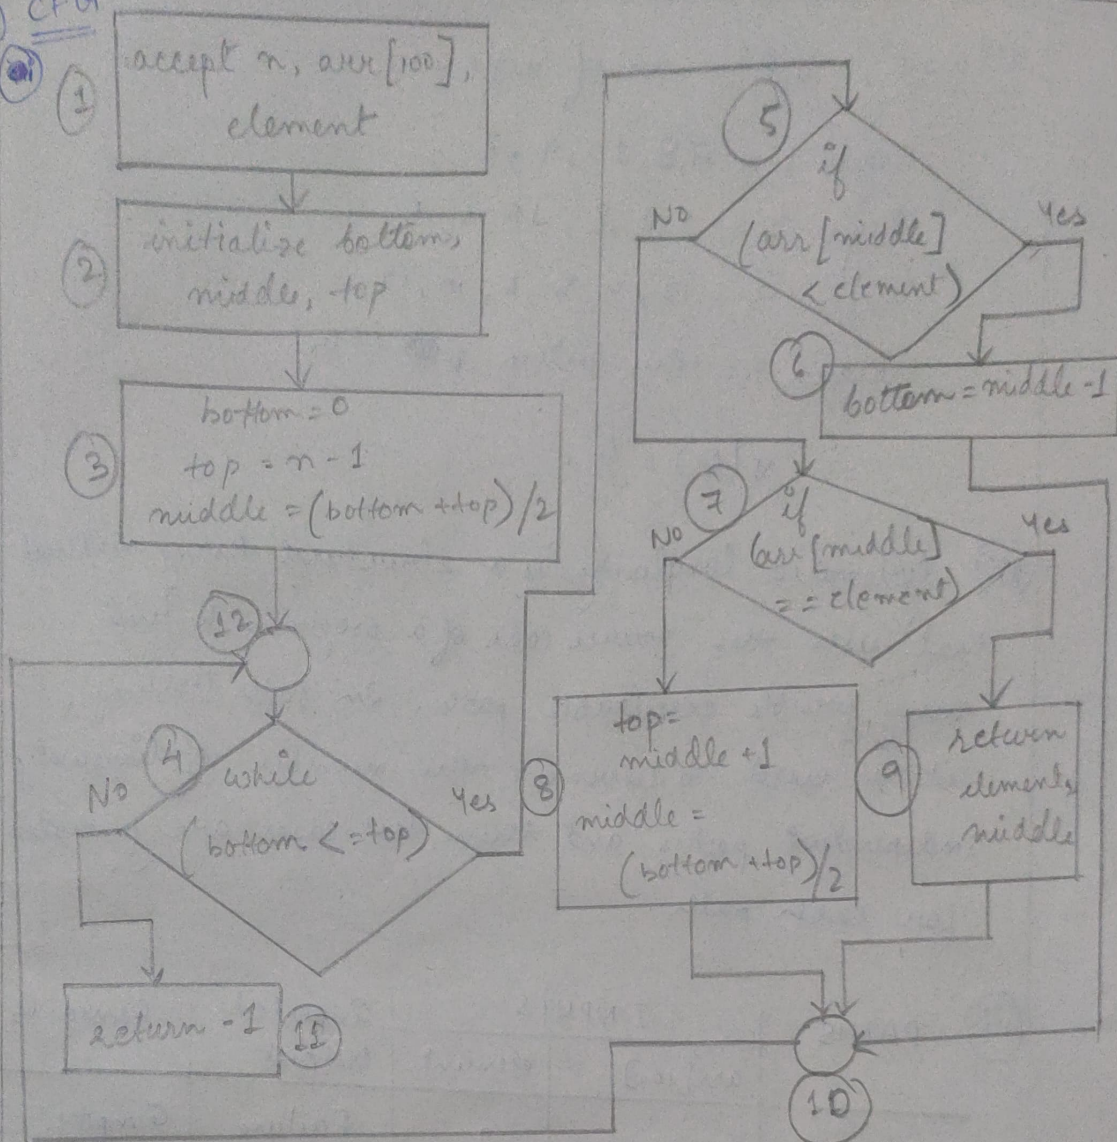 CFG
1
accept n, arr[100],
element
2
initialize bottom,
middle, top
3
bottom = 0
top = n - 1
middle = (bottom + top)/2
12
4
while
(bottom <= top)
No
Yes
return -1
11
5
if
(arr[middle]
< element)
NO
Yes
6
bottom = middle - 1
7
if
(arr[middle]
== element)
No
Yes
8
top =
middle + 1
middle =
(bottom + top)/2
9
return
element,
middle
10